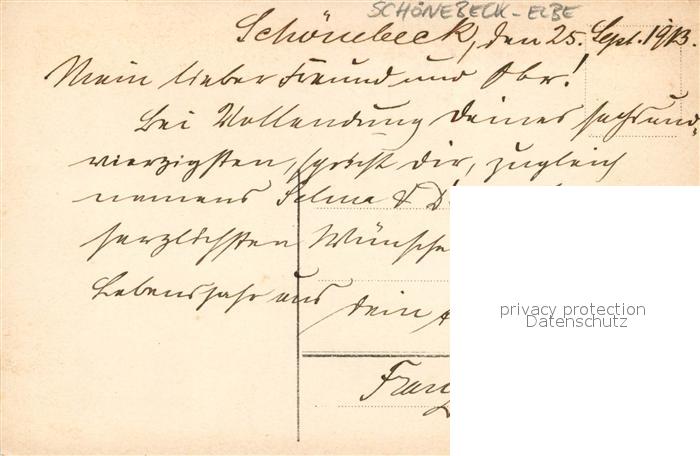 SCHÖNEBECK-ELBE
Schönebeck, den 25. Sept. 1913.
Mein lieber Freund und Obr!
Bei Vollendung Deines sechsund-
vierzigsten, spricht Dir, zugleich
namens Selma &
herzlichsten Wünsche
Lebensjahr aus
Dein
privacy protection
Datenschutz